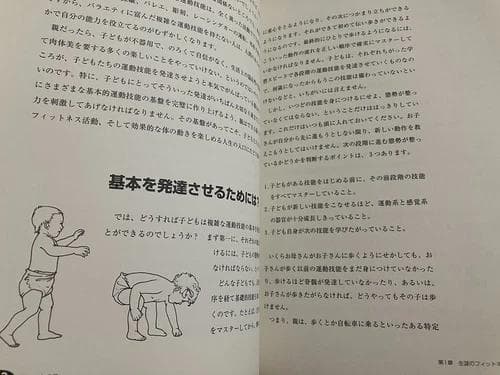 から、バラエティに富んだ複雑な運動技能を持たない人は、
バレエ、彫刻、レーシングカーの
か自分の能力を役立てるのがむずかしくなります。
親だったら、子どもが不器用で、のろくて自信がなく、
て肉体美を愛する多くの楽しいことをやっていけない、といっ
ころが、子どもたちの運動技能を発達させようと本気でがんばって
いのです。特に、子どもにとってそういった発達がいちばん大切な
にさまざまな基本的運動技能の基盤を完璧に作り上げるよう、
力を刺激してあげなければなりません。その基盤があってこそ、子ども
フィットネス活動、そして効果的な体の動きを楽しめる人生の
基本を発達させるためには
では、どうすれば子どもは複雑な運動技能の基本を
とができるのでしょうか?
まず第一に、それぞれの
けるには、子どもが
なければならない、
どんな子どもでも、
序を経て基礎的技能を
をマスターしてから、
に重心をとるようになり、その次につかまり立ちができる
ようになります。それができて初めて伝い歩きができるよ
うになるのです。最終的にひとりで歩けるようになるのは、
こういった動作の流れを正しい順序で確実にマスターして
からでなければなりません。子どもは、それぞれちがった学
習スピードで各段階の運動技能を発達させていくものなの
で、何歳になったからもうこの技能は備わっていないとい
けないなどと、いちがいには言えません。
しかし、いつどの技能を身につけるにせよ、態勢が整っ
ていなくてはならない、ということだけははっきりしてい
ます。これだけはいつも頭に入れておいてください。お子
さんが自分から先に進もうとしない限り、新しい動作を教
えこもうとしてはいけません。次の段階に進む態勢が整っ
ているかどうかを判断するポイントは、3つあります。
1. 子どもがある技能をはじめる前に、その前段階の技能
をすべてマスターしていること。
2. 子どもが新しい技能をこなせるほど、運動系と感覚系
の器官が十分成長しきっていること。
3. 子ども自身が次の技能を学びたがっていること。
いくらお母さんがお子さんに歩くようにせかしても、お
子さんが歩く以前の運動技能をまだ身につけていなかった
り、歩けるほど骨髄が発達していなかったり、あるいは、
お子さんが歩きたがらなければ、どうやってもその子は歩
けません。
つまり、親は、歩くとか自転車に乗るといったある特定
第1章 生涯のフィットネ